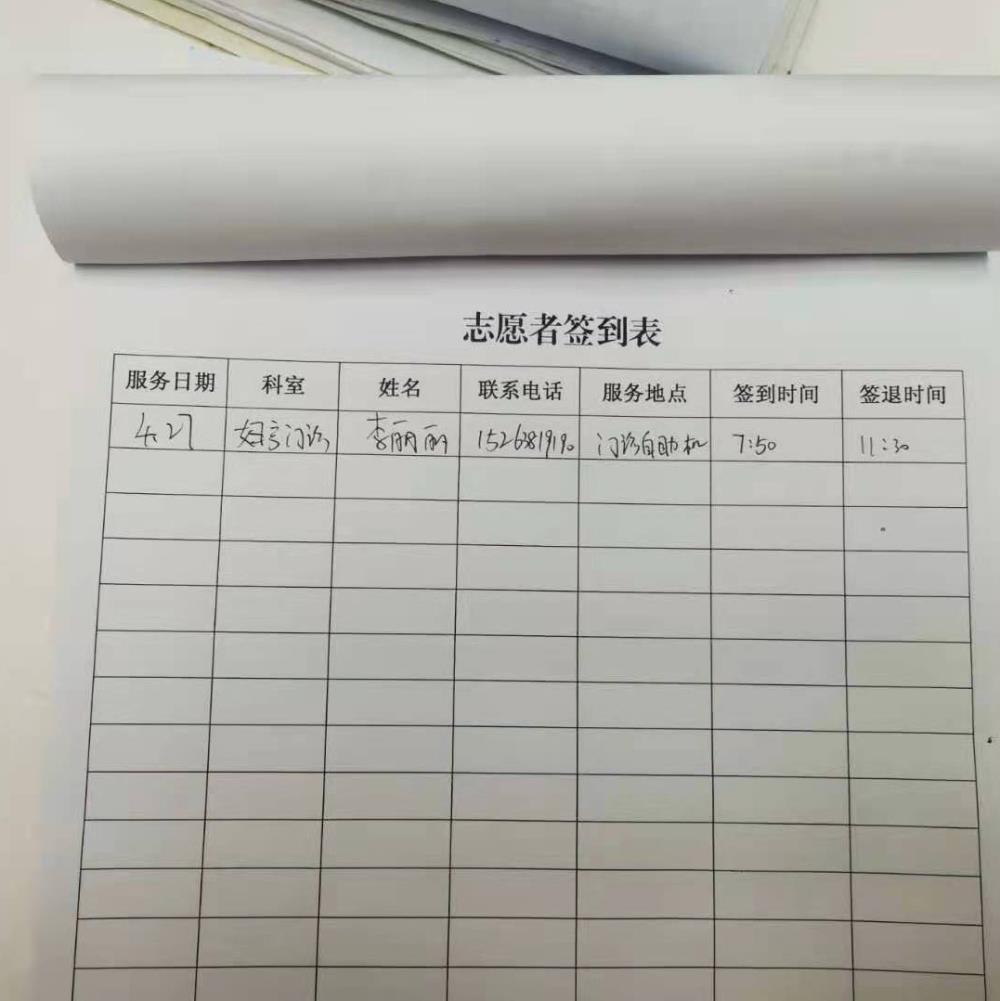 志愿者签到表
服务日期 科室 姓名 联系电话 服务地点 签到时间 签退时间
4.27 李丽丽 门诊自助机 7:50 11:30